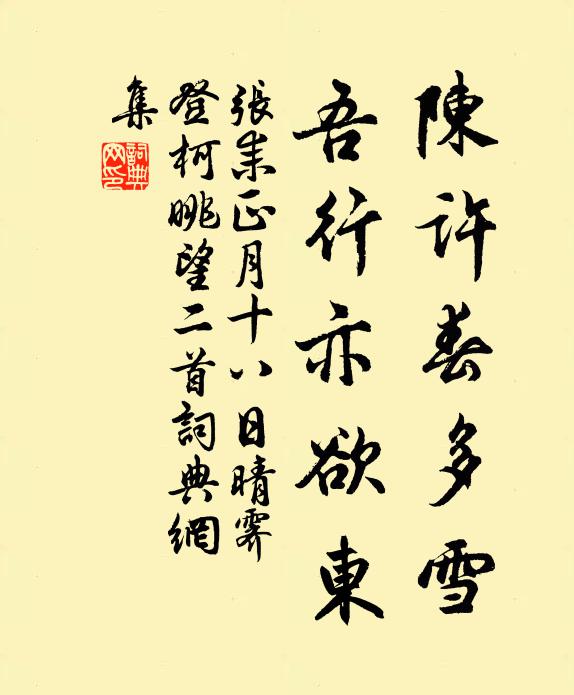 陳許春多雪
吾行亦欲東
張耒正月十八日晴霽
登柯眺望二首詞典網
集
詞典網印